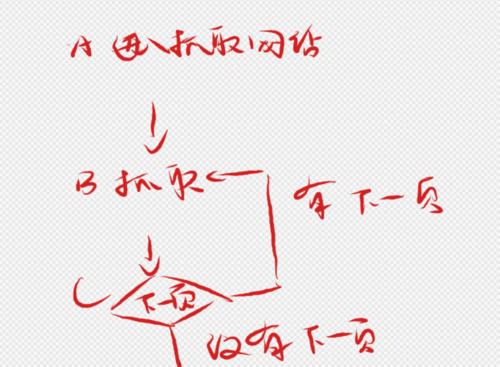 A 进入抓取网站
B 抓取
有下一页
C 下一页
没有下一页